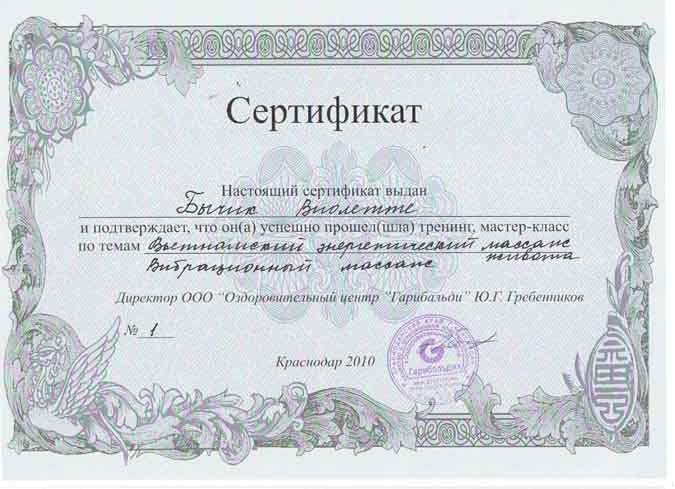 Сертификат
Настоящий сертификат выдан
Бычик Виолетте
и подтверждает, что он(а) успешно прошел(шла) тренинг, мастер-класс
по темам Вьетнамский энергетический массаж живота
Вибрационный массаж
Директор ООО “Оздоровительный центр “Гарибальди” Ю.Г. Гребенников
№ 1
Гарибальди
Краснодар 2010